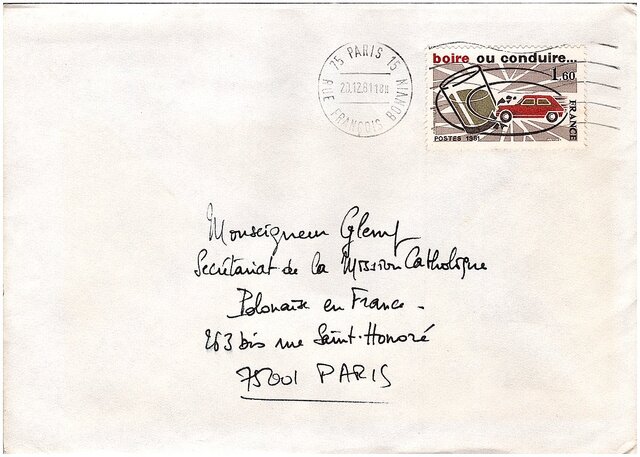 75 PARIS 15
RUE FRANÇOIS BONVIN
boire ou conduire...
1,60
FRANCE
POSTES 1981
Monseigneur Glemp
Secrétariat de la Mission Catholique
Polonaise en France.
263 bis rue Saint-Honoré
75001 PARIS